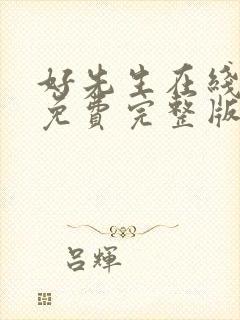 好先生在线
免費完整版
吕輝